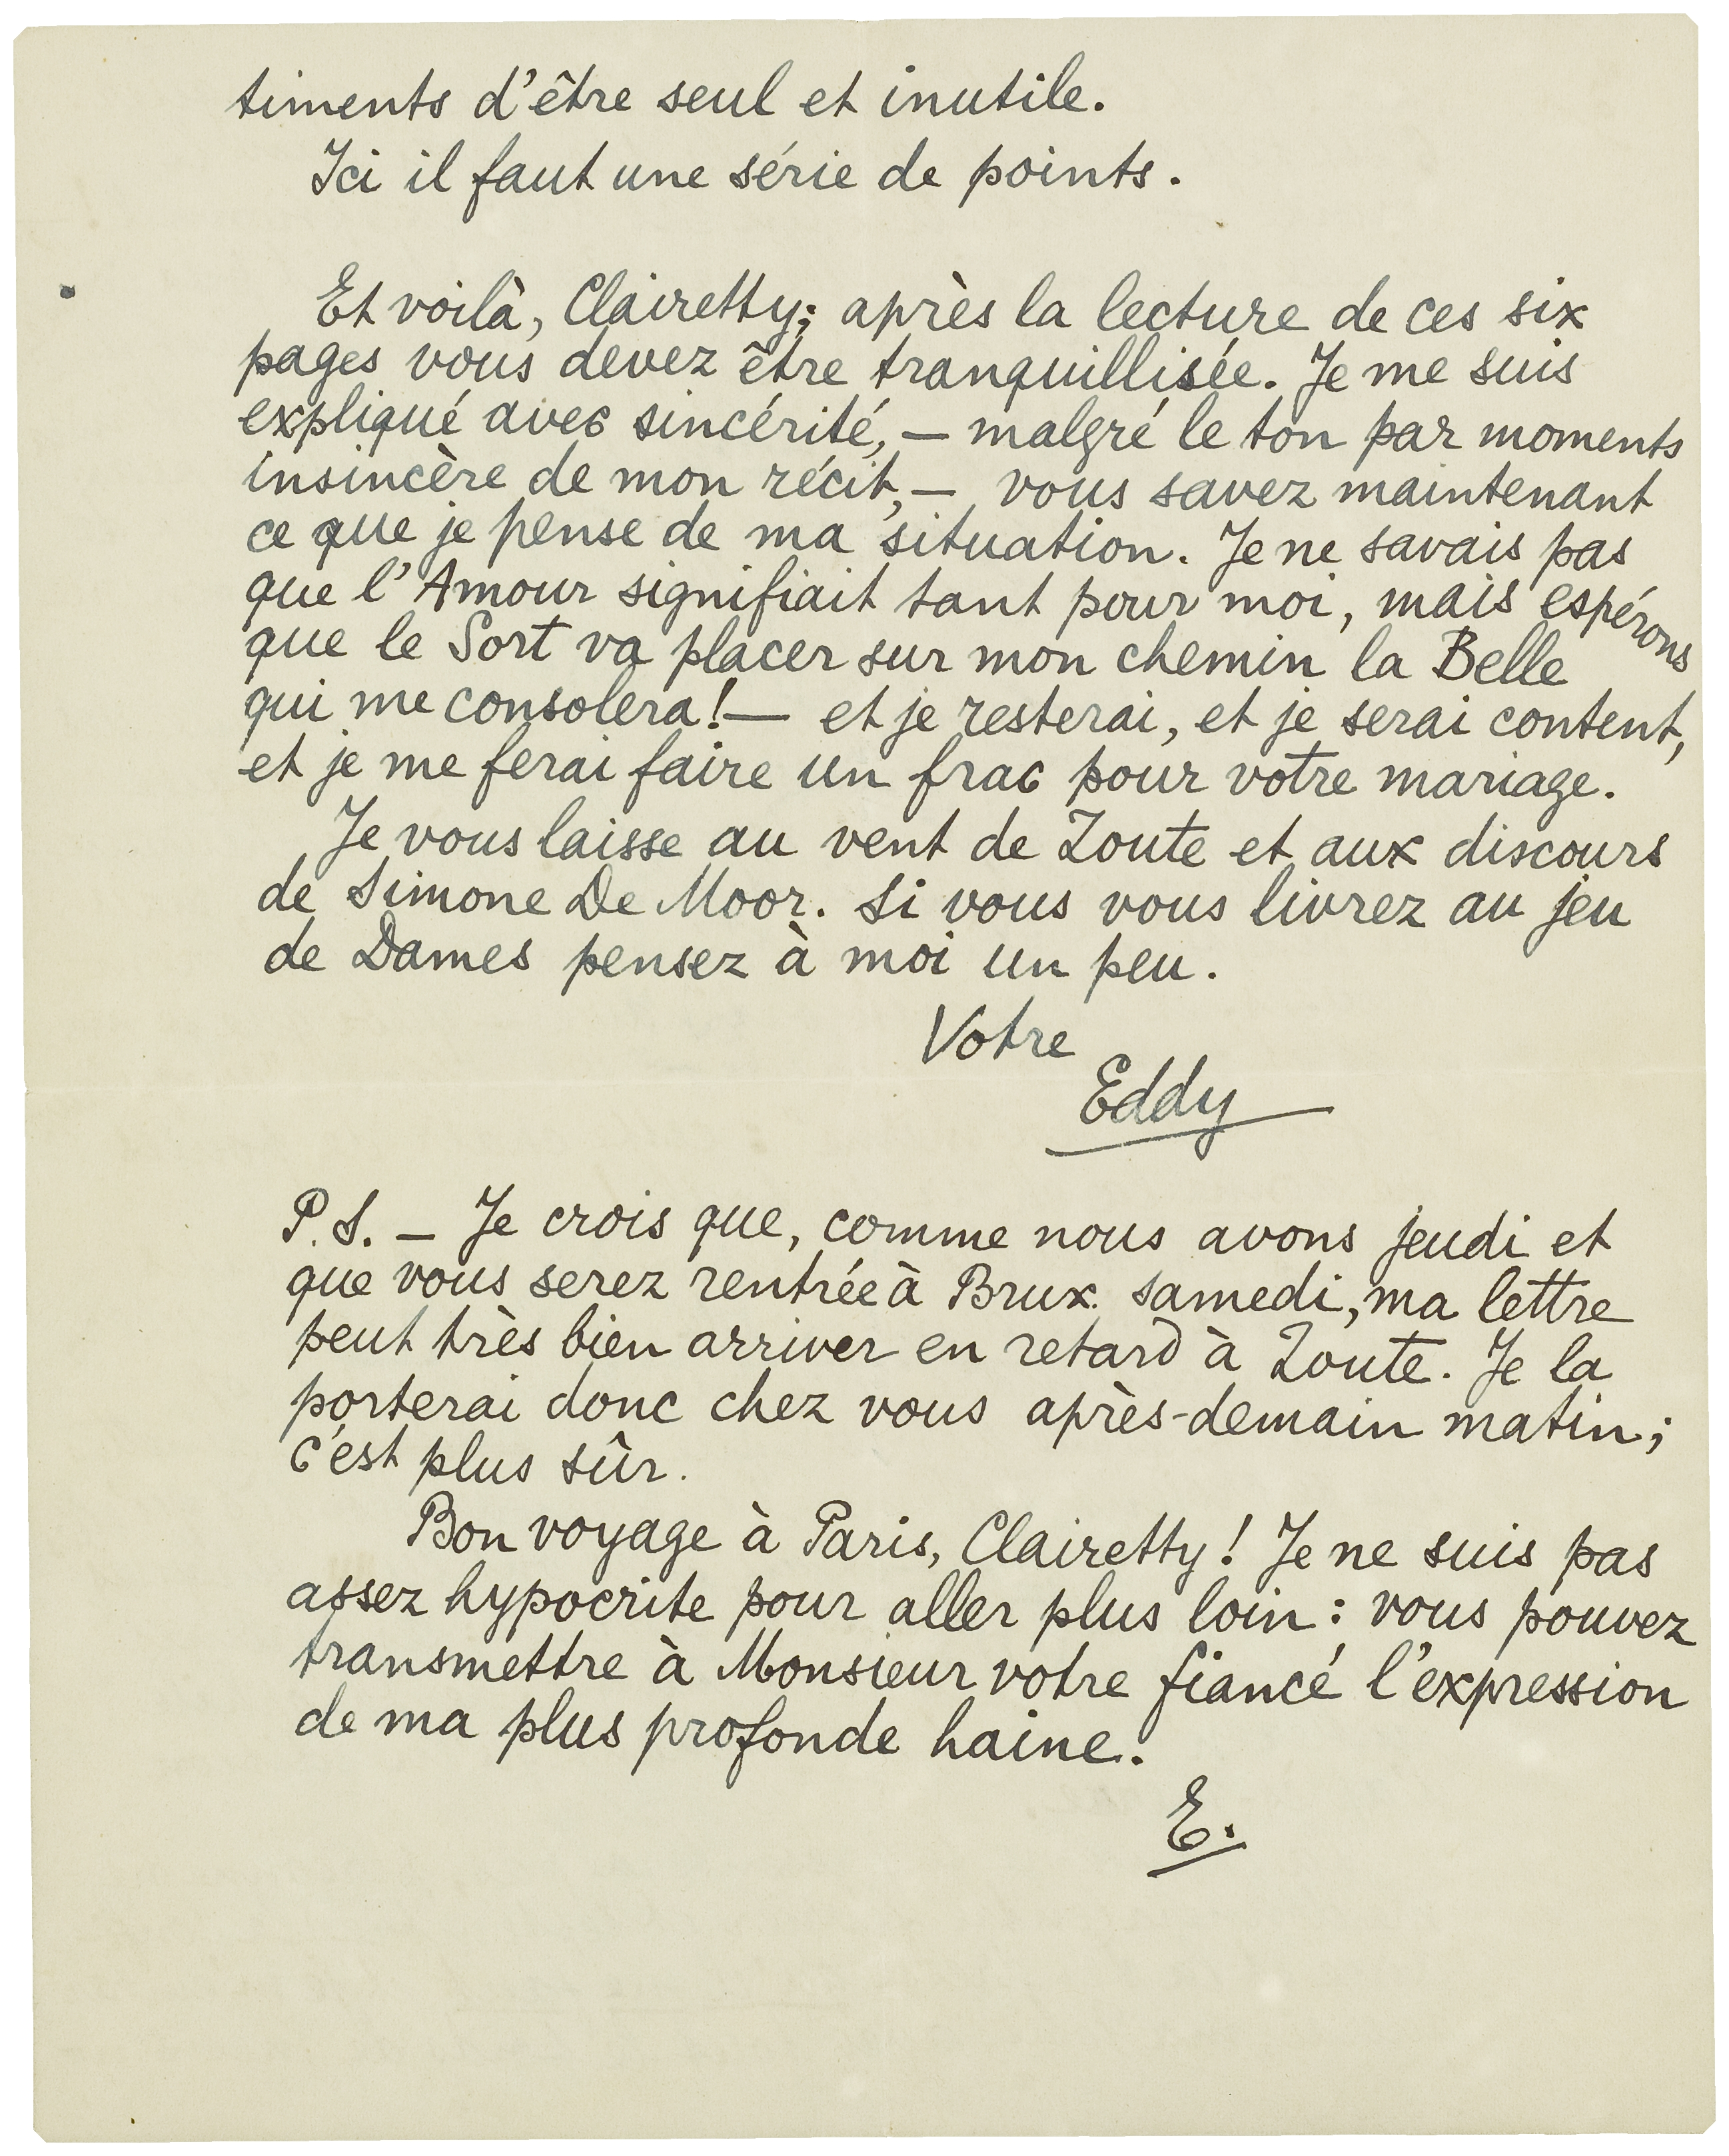 timents d'être seul et inutile.
Ici il faut une série de points.
Et voilà, Clairetty; après la lecture de ces six
pages vous devez être tranquillisée. Je me suis
expliqué avec sincérité, — malgré le ton par moments
insincère de mon récit, — vous savez maintenant
ce que je pense de ma situation. Je ne savais pas
que l'Amour signifiait tant pour moi, mais espérons
que le Sort va placer sur mon chemin la Belle
qui me consolera! — et je resterai, et je serai content,
et je me ferai faire un frac pour votre mariage.
Je vous laisse au vent de Zoute et aux discours
de Simone De Moor. Si vous vous livrez au jeu
de Dames pensez à moi un peu.
Votre
Eddy
P.S. — Je crois que, comme nous avons jeudi et
que vous serez rentrée à Brux. samedi, ma lettre
peut très bien arriver en retard à Zoute. Je la
porterai donc chez vous après-demain matin;
c'est plus sûr.
Bon voyage à Paris, Clairetty! Je ne suis pas
assez hypocrite pour aller plus loin: vous pouvez
transmettre à Monsieur votre fiancé l'expression
de ma plus profonde haine.
E.